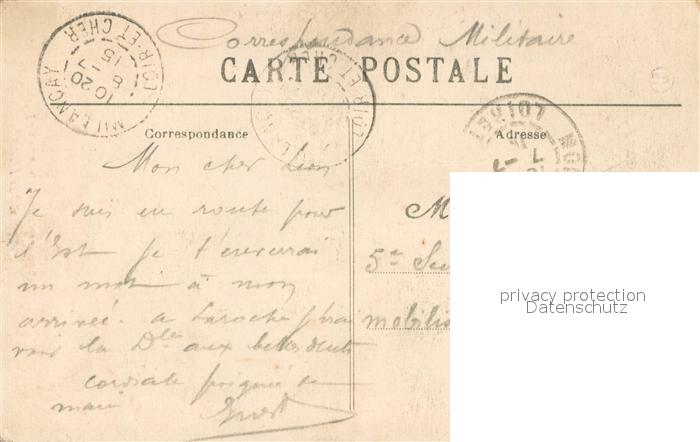 Correspondance Militaire
CARTE POSTALE
MILLANÇAY
LOIR-ET-CHER
10 20
8 - 1
15
LOIR-ET-CHER
LOIRET
Correspondance
Adresse
Mon cher Léon
Je suis en route pour
l'Est je t'enverrai
un mot à mon
arrivée. a Laroche j'irai
voir la Dlle aux belles dents
cordiale poignée de
main
Ernest
M
5e
mobilis
privacy protection
Datenschutz